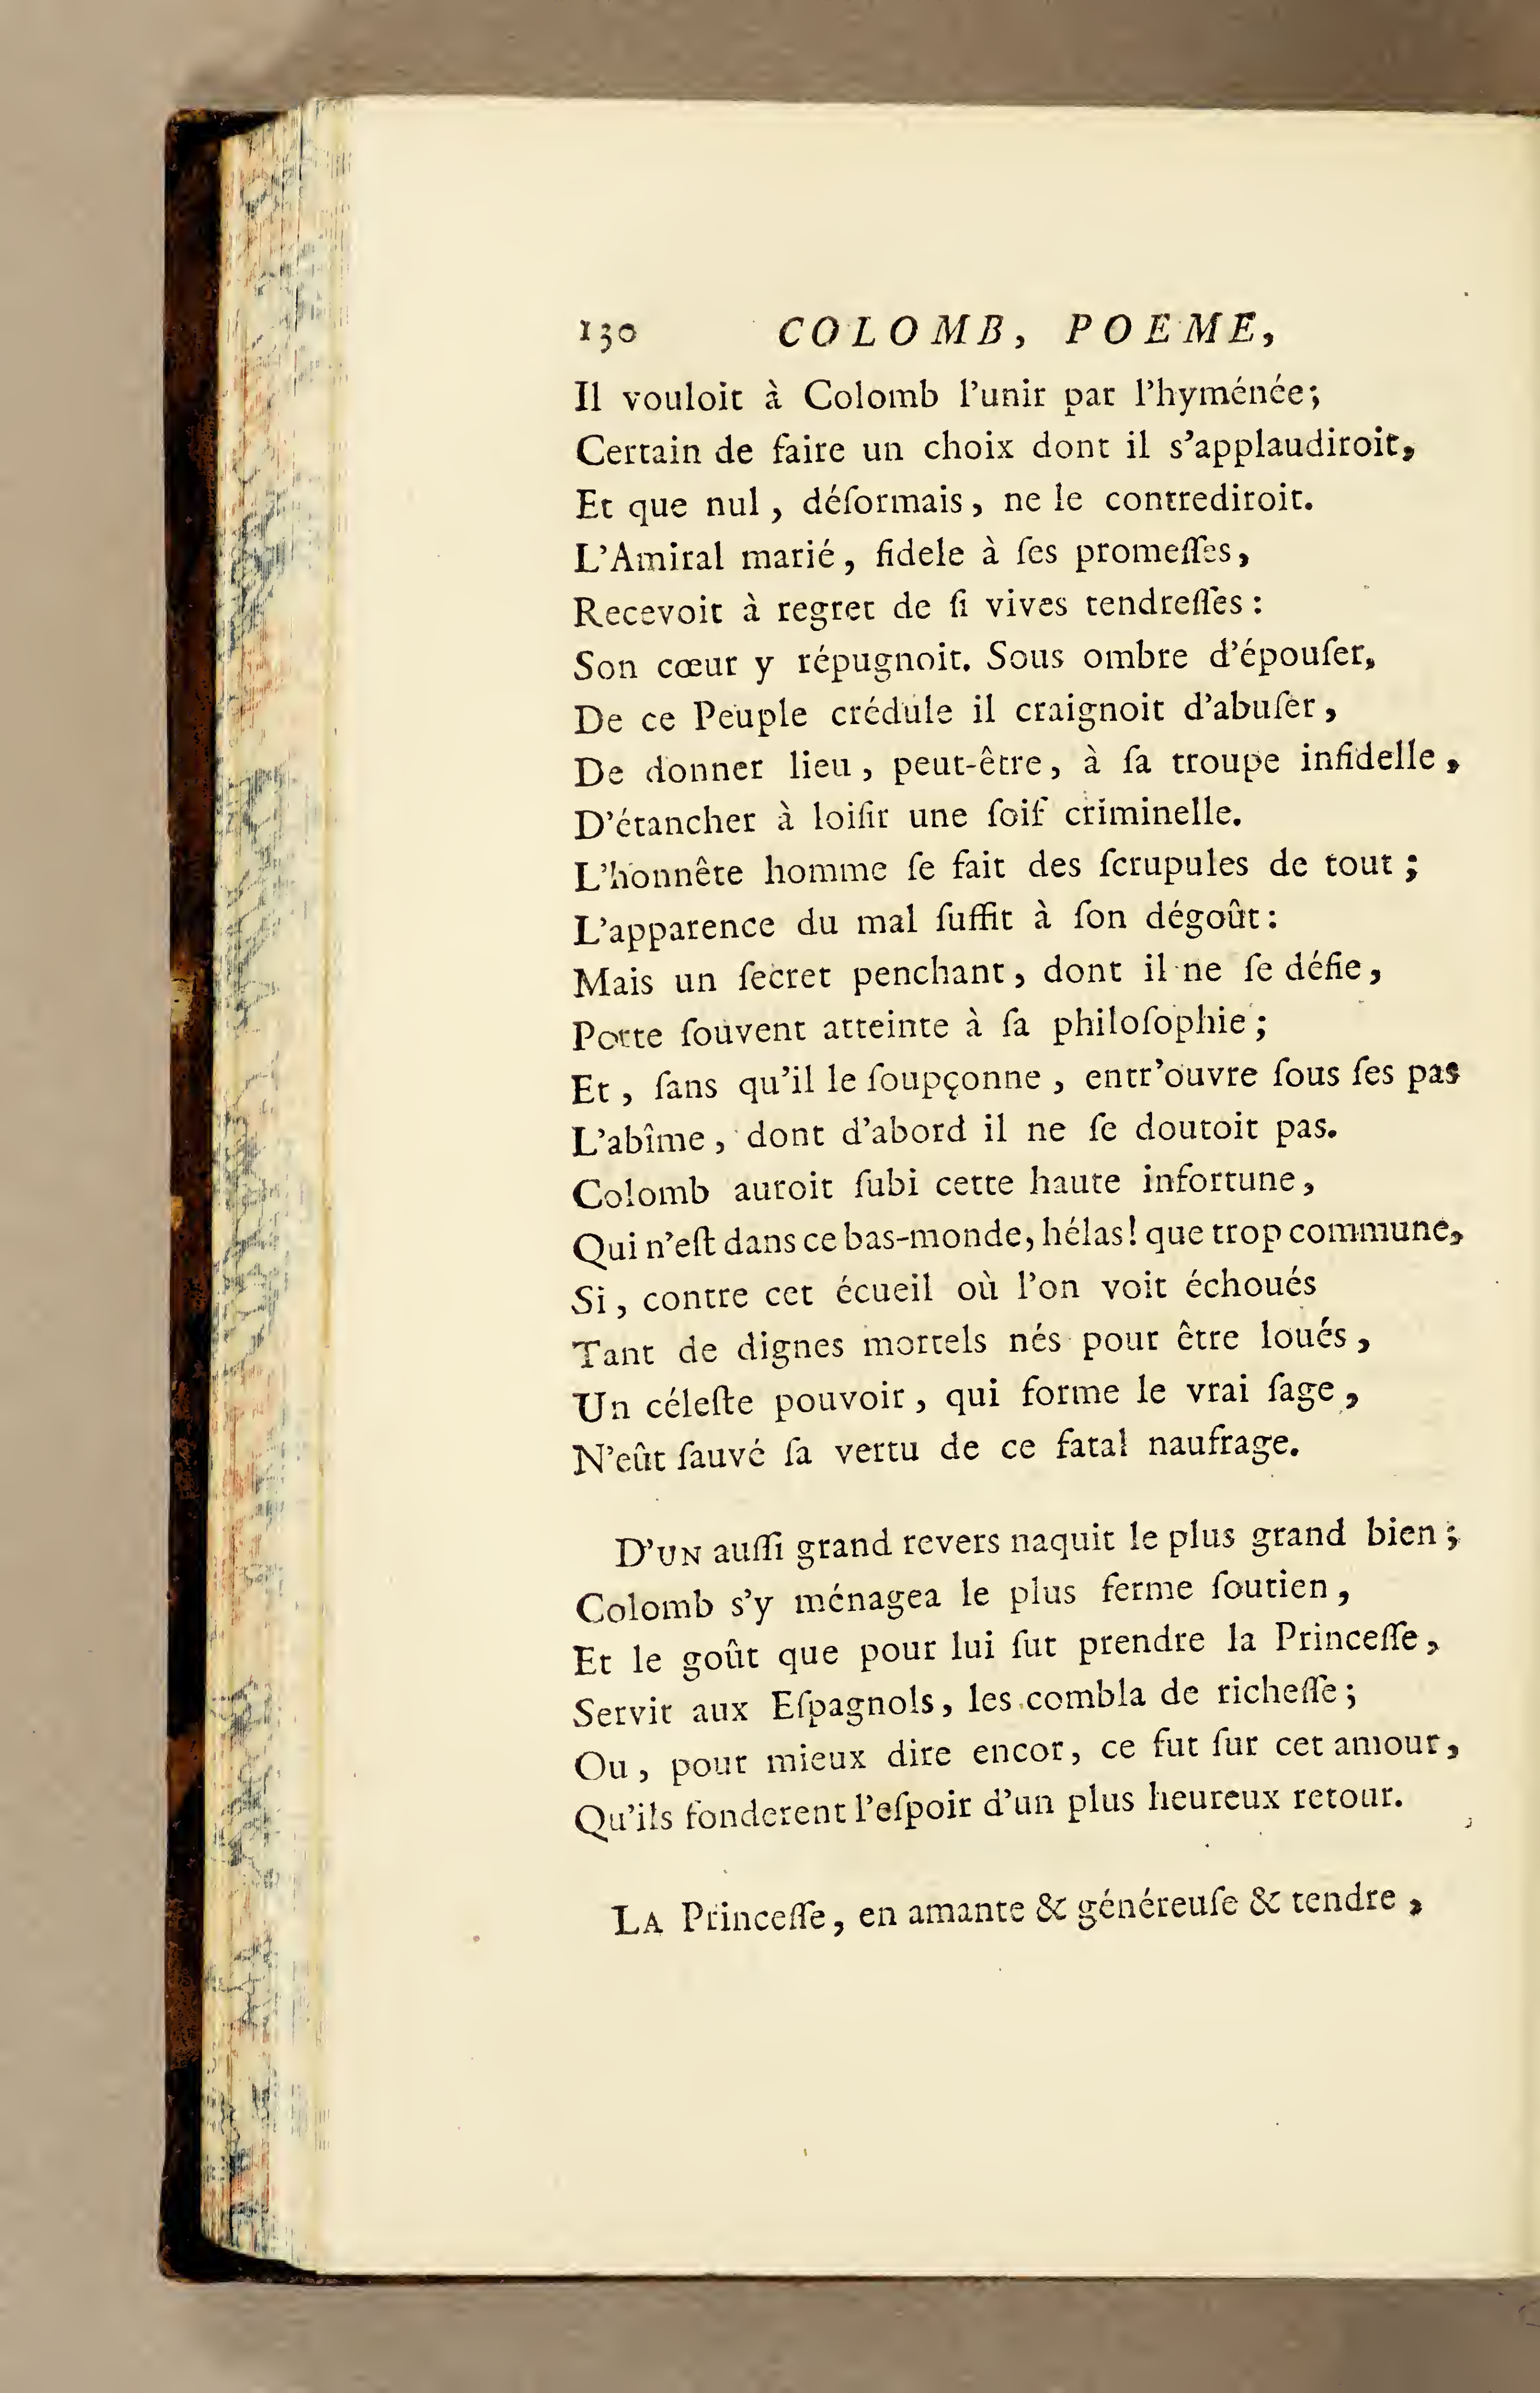 130 COLOMB, POEME,
Il vouloit à Colomb l'unir par l'hyménée;
Certain de faire un choix dont il s'applaudiroit,
Et que nul, déſormais, ne le contrediroit.
L'Amiral marié, fidele à ſes promeſſes,
Recevoit à regret de ſi vives tendreſſes :
Son cœur y répugnoit. Sous ombre d'épouſer,
De ce Peuple crédule il craignoit d'abuſer,
De donner lieu, peut-être, à ſa troupe infidelle,
D'étancher à loiſir une ſoif criminelle.
L'honnête homme ſe fait des ſcrupules de tout ;
L'apparence du mal ſuffit à ſon dégoût :
Mais un ſecret penchant, dont il ne ſe défie,
Porte ſouvent atteinte à ſa philoſophie ;
Et, ſans qu'il le ſoupçonne, entr'ouvre ſous ſes pas
L'abîme, dont d'abord il ne ſe doutoit pas.
Colomb auroit ſubi cette haute infortune,
Qui n'eſt dans ce bas-monde, hélas! que trop commune,
Si, contre cet écueil où l'on voit échoués
Tant de dignes mortels nés pour être loués,
Un céleſte pouvoir, qui forme le vrai ſage,
N'eût ſauvé ſa vertu de ce fatal naufrage.
D'UN auſſi grand revers naquit le plus grand bien ;
Colomb s'y ménagea le plus ferme ſoutien,
Et le goût que pour lui ſut prendre la Princeſſe,
Servit aux Eſpagnols, les combla de richeſſe ;
Ou, pour mieux dire encor, ce fut ſur cet amour,
Qu'ils fonderent l'eſpoir d'un plus heureux retour.
LA Princeſſe, en amante & généreuſe & tendre,